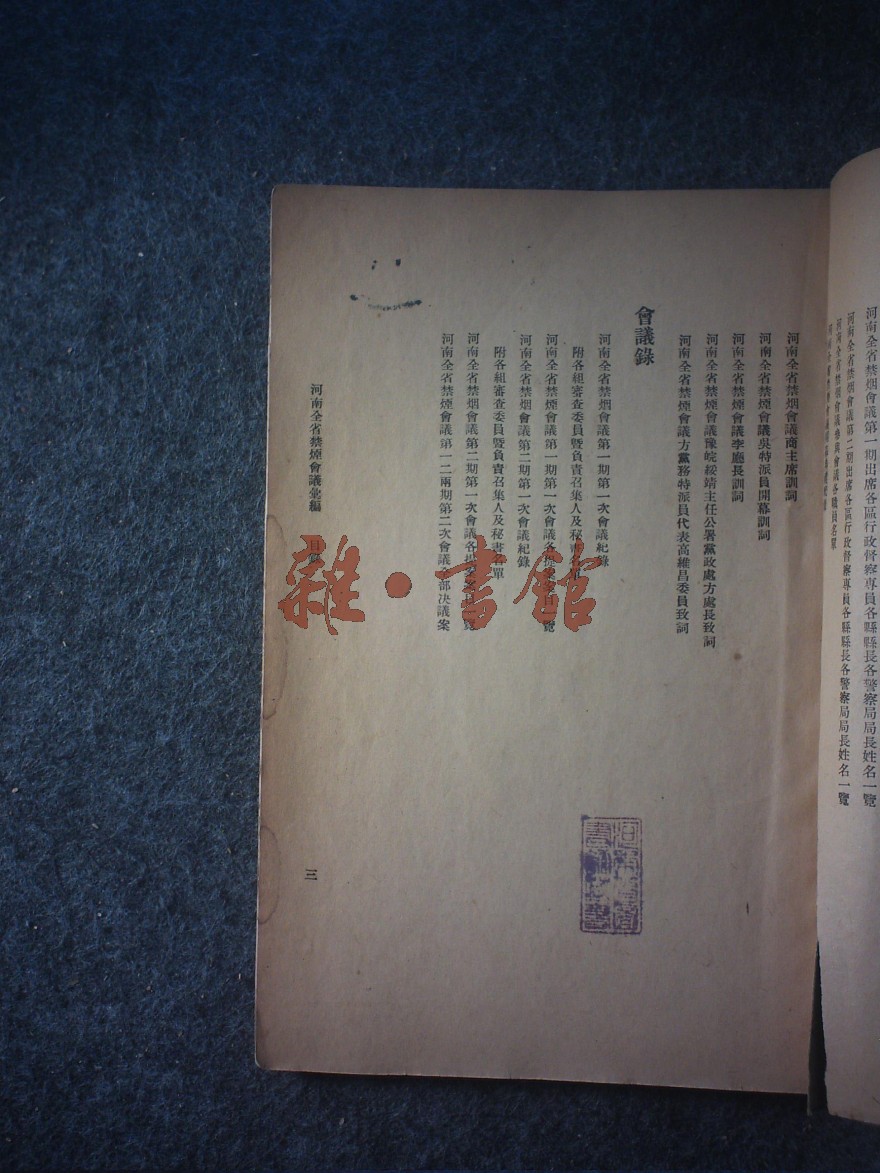 河南全省禁烟會議第一期出席各區行政督察專員各縣縣長各警察局局長姓名一覽
河南全省禁烟會議第二期出席各區行政督察專員各縣縣長各警察局局長姓名一覽
河南全省禁煙會議參與會議各職員名單
河南全省禁煙會議商主席訓詞
河南全省禁煙會議吳特派員開幕訓詞
河南全省禁煙會議李廳長訓詞
河南全省禁煙會議豫皖綏靖主任公署黨政處方處長致詞
河南全省禁煙會議方黨務特派員代表高維昌委員致詞
會議錄
河南全省禁烟會議第一期第一次會議紀錄
附各組審查委員暨負責召集人及秘書名單
河南全省禁煙會議第一期第一次會議各提案一覽
河南全省禁烟會議第二期第一次會議紀錄
附各組審查委員暨負責召集人及秘書名單
河南全省禁烟會議第二期第一次會議各提案一覽
河南全省禁煙會議第一二兩期第二次會議全部决議案
河南全省禁煙會議彙編 目錄
三
雜·書館